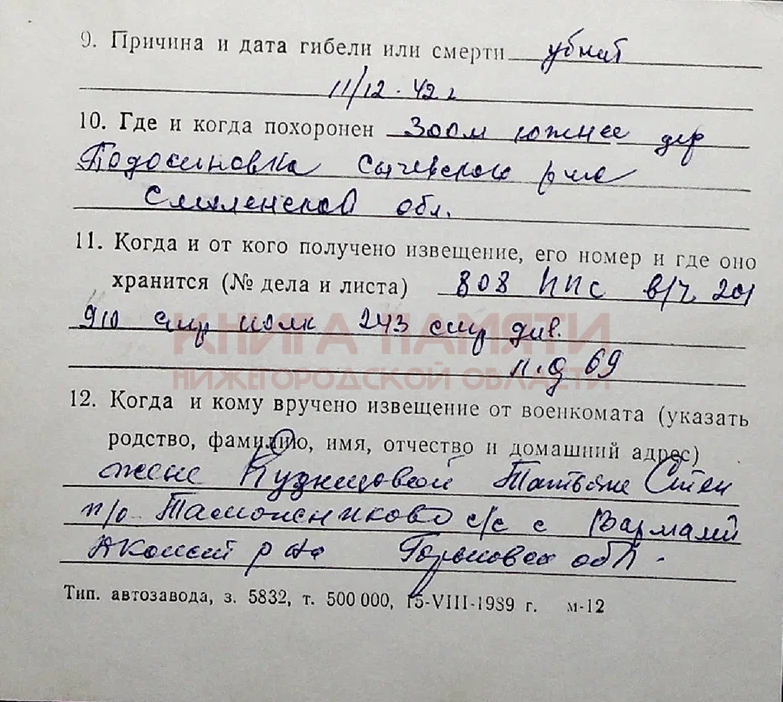 9. Причина и дата гибели или смерти убит
11/12. 42 г
10. Где и когда похоронен 300м южнее дер
Подосиновка Сычевского р-на
Смоленской обл.
11. Когда и от кого получено извещение, его номер и где оно
хранится (№ дела и листа) 808 ППС в/ч 201
910 стр полк 243 стр див.
КНИГА ПАМЯТИ
НИЖЕГОРОДСКОЙ ОБЛАСТИ
л.д 69
12. Когда и кому вручено извещение от военкомата (указать
родство, фамилию, имя, отчество и домашний адрес)
жене Кузнецовой Татьяне Степ
п/о с/с с Вармалей
р на Горьковск обл.
Тип. автозавода, з. 5832, т. 500 000, 15-VIII-1989 г. м-12